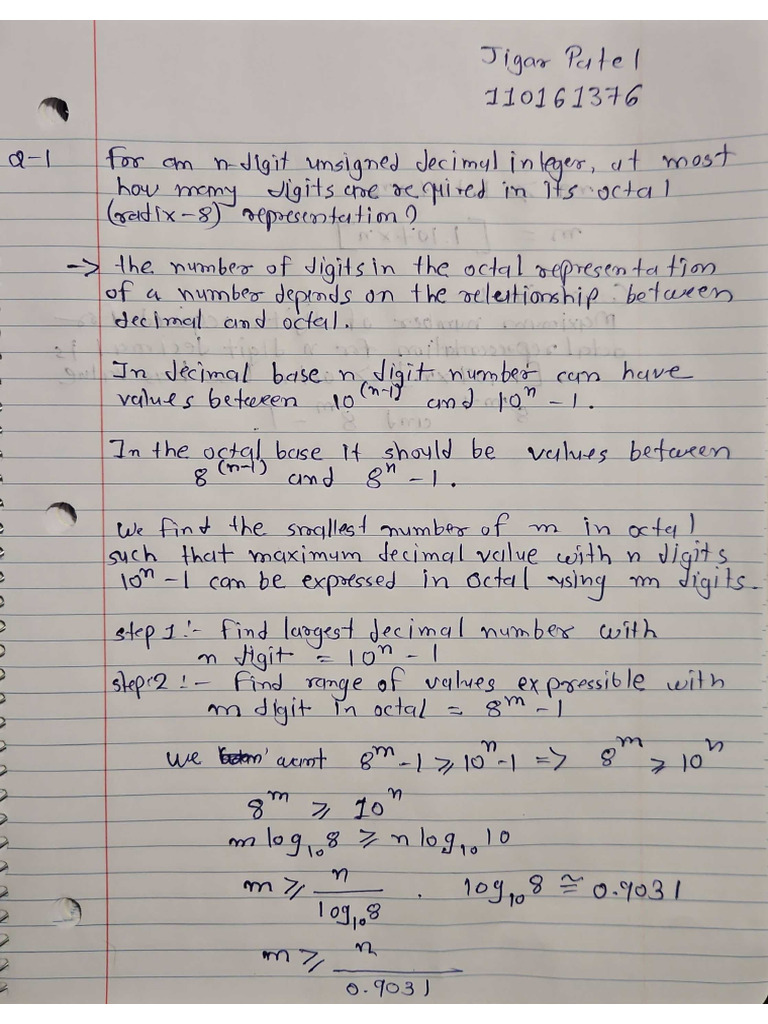 Jigar Patel
110161376
Q-1 For an n-digit unsigned decimal integer, at most
how many digits are required in its octal
(radix-8) representation?
-> the number of digits in the octal representation
of a number depends on the relationship between
decimal and octal.
In decimal base n digit number can have
values between 10^(n-1) and 10^n - 1.
In the octal base it should be values between
8^(n-1) and 8^n - 1.
we find the smallest number of m in octal
such that maximum decimal value with n digits
10^n - 1 can be expressed in octal using m digits.
step 1 :- Find largest decimal number with
n digit = 10^n - 1
step:2 :- Find range of values expressible with
m digit in octal = 8^m - 1
we want 8^m - 1 ≥ 10^n - 1 => 8^m ≥ 10^n
8^m ≥ 10^n
m log₁₀8 ≥ n log₁₀10
m ≥ n / log₁₀8 . log₁₀8 ≅ 0.9031
m ≥ n / 0.9031